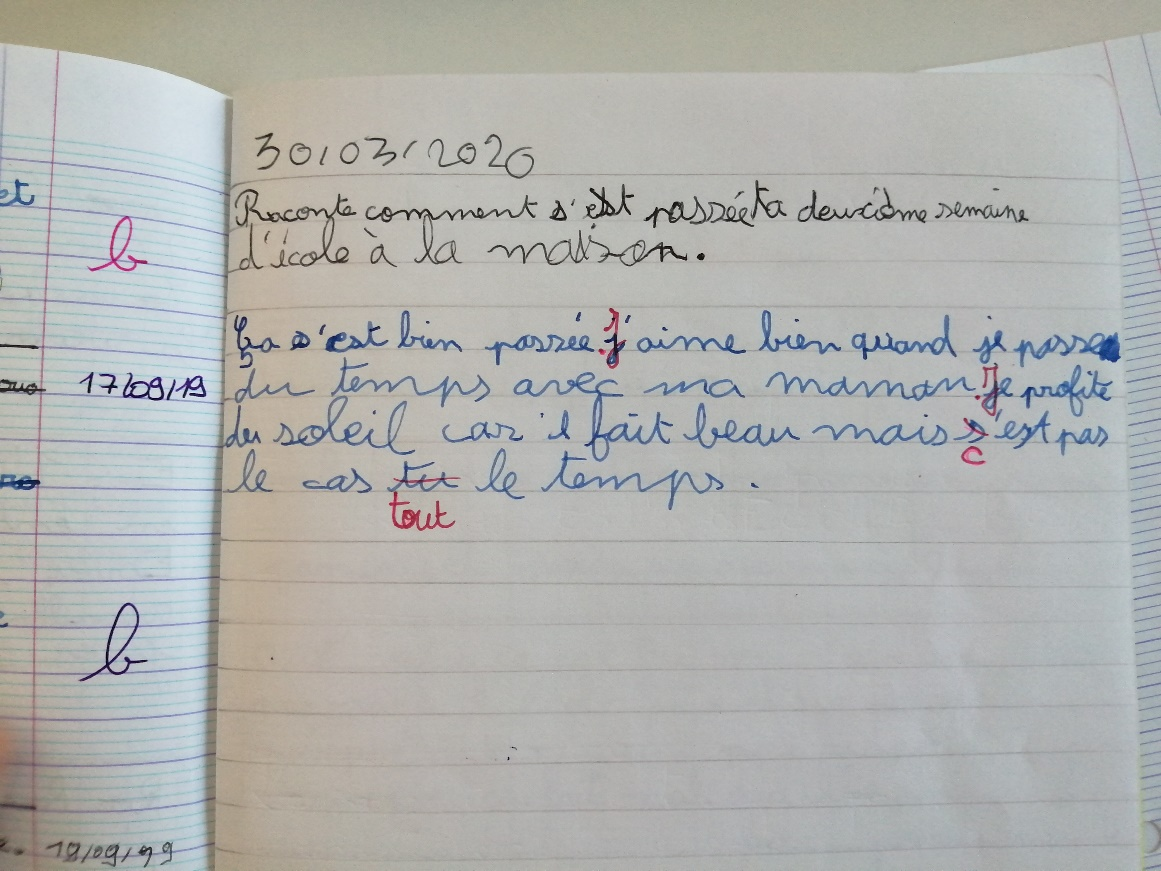 et
b
17/09/19
b
18/09/19
30/03/2020
Raconte comment s'est passée ta deuxième semaine
d'école à la maison.
Ça s'est bien passée. J'aime bien quand je passe
du temps avec ma maman. Je profite
du soleil car il fait beau mais s'est pas
c
le cas tu le temps.
tout